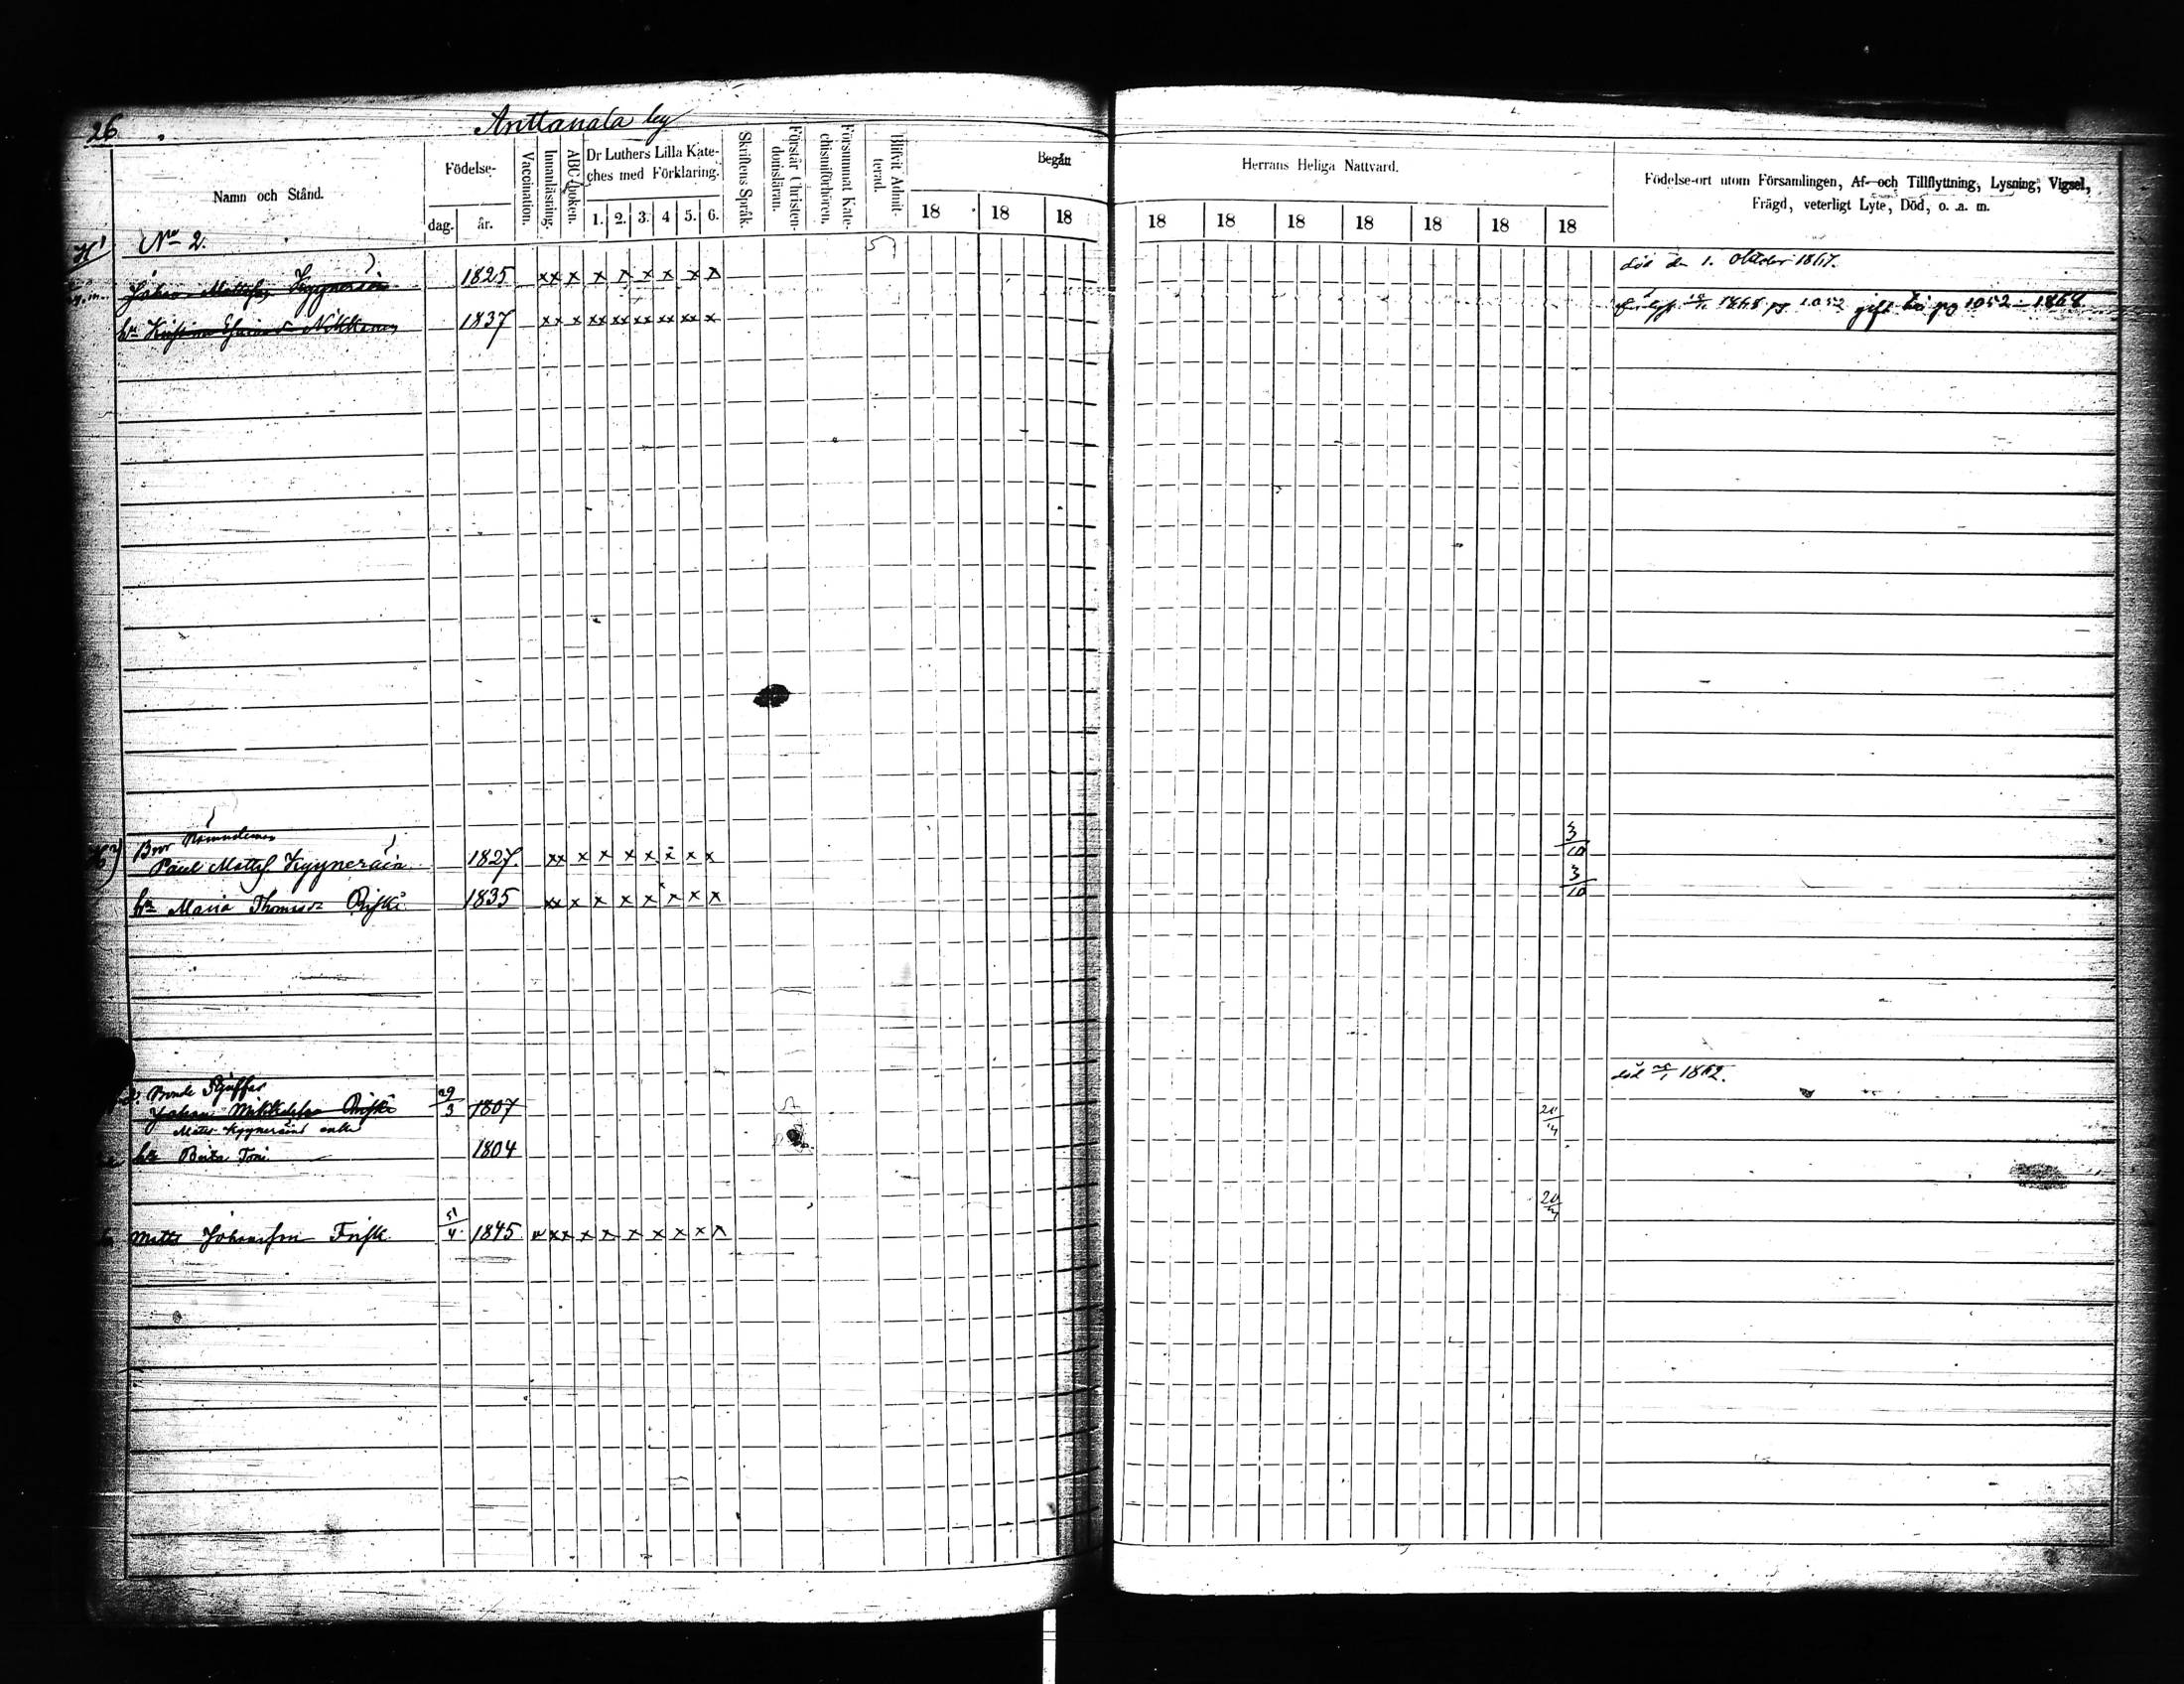 26
Anttanala by
Namn och Stånd.
Födelse-
dag.
år.
Vaccination.
Innanläsning.
ABC-boken.
Dr Luthers Lilla Kate-
ches med Förklaring.
1. 2. 3. 4 5. 6.
Skriftens Språk.
Förstår Christen-
domsläran.
Försummat Kate-
chismiförhören.
Blifvit Admit-
terad.
Begått
18 18 18
Herrans Heliga Nattvard.
18 18 18 18 18 18 18
Födelse-ort utom Församlingen, Af- och Tillflyttning, Lysning, Vigsel,
Frägd, veterligt Lyte, Död, o. a. m.
No 2.
Johan Mattsson Kyyneräin 1825 xx x x x x x x x död den 1. Oktober 1867.
hu 1837 xx x xx xx xx xx xx x 1868 pg 1052 gift pg 1052 - 1868
Nämndeman
Bror
Paul Matts. Kyyneräin 1827 xx x x x x x x x 3/10
hu Maria Thomasd Riski 1835 xx x x x x x x x 3/10
Bonde
Johan Riski 29/3 1807 död 1862.
Matts Kyyneräins enka
hu Brita Toni 1804
Matts Johansson Frisk 4 1845 v xx x x x x x x x